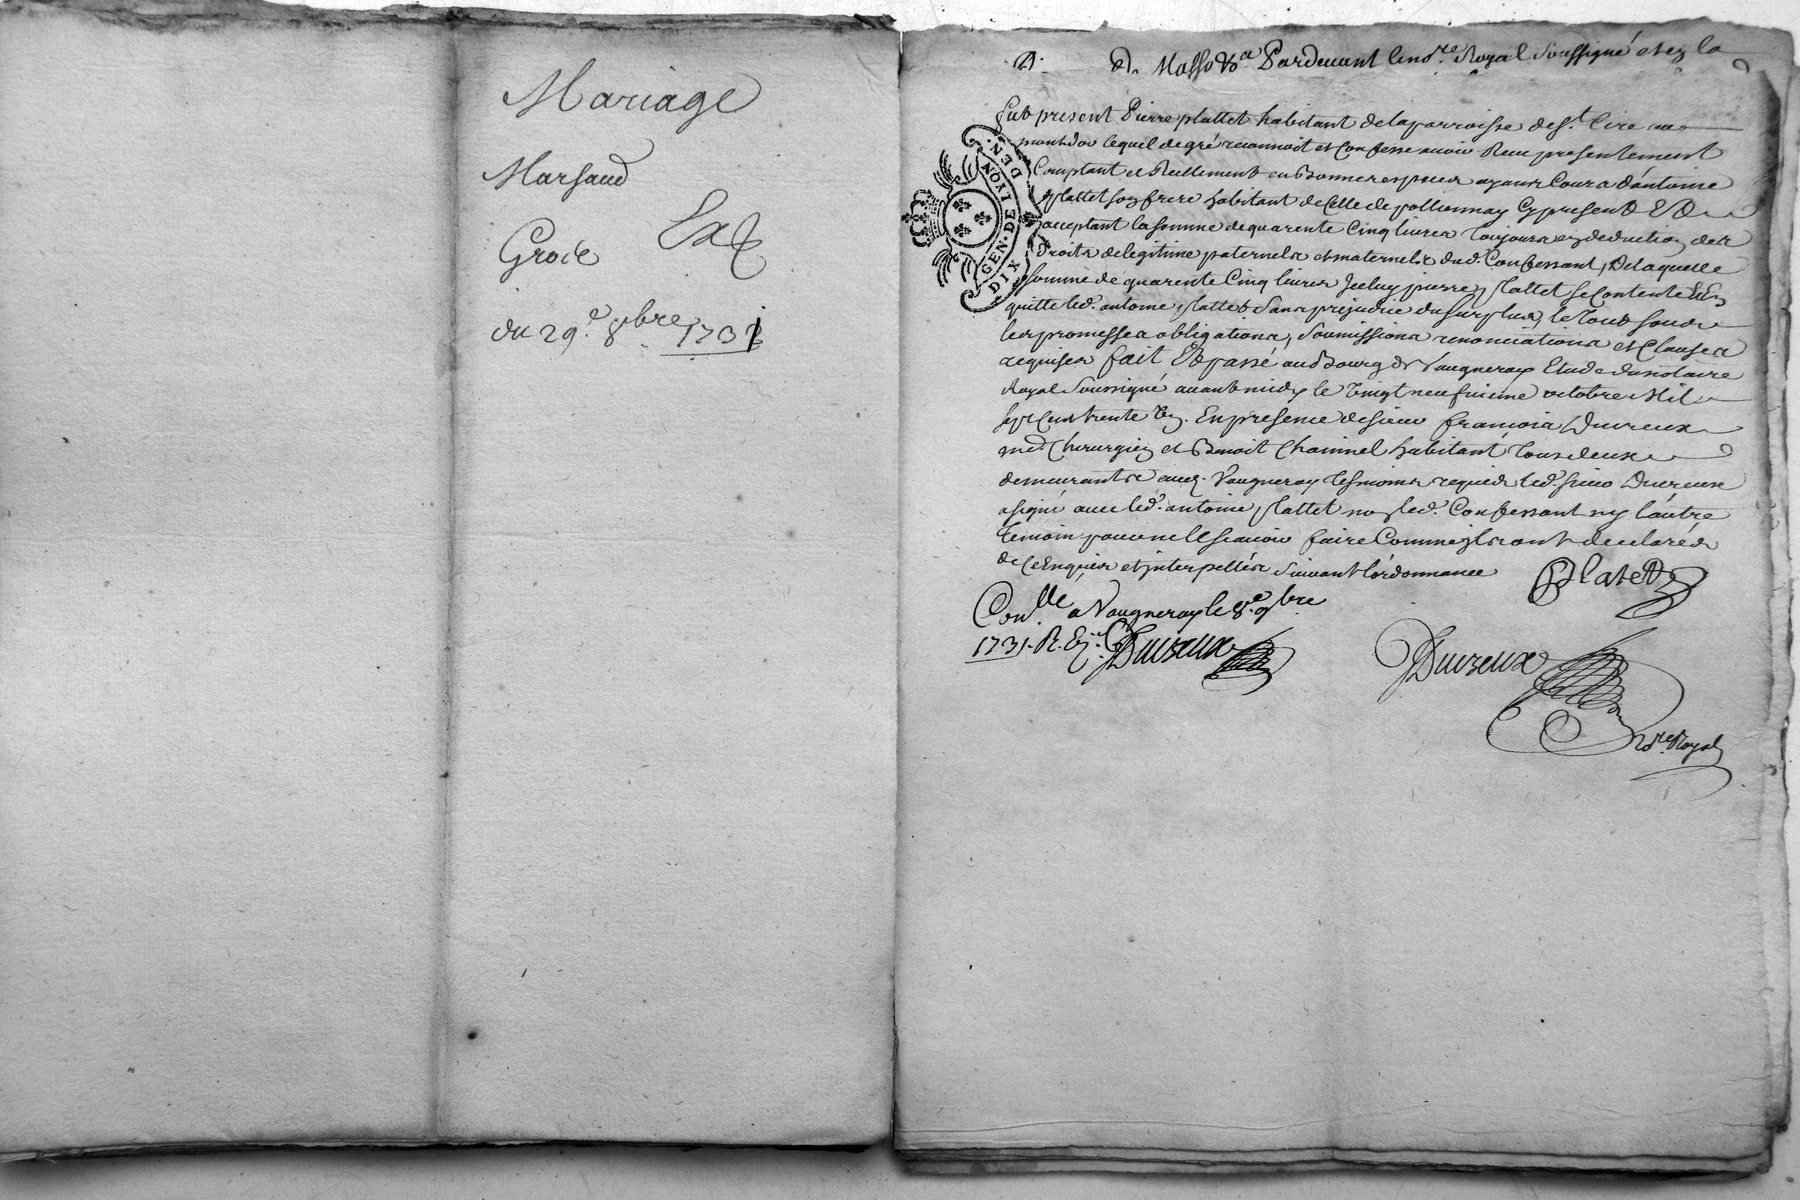 Mariage
Marsaud
Groie
Ex
du 29.e 8bre 1731
Pardevant le no.re Royal soussigné et en la
fut present Pierre plattet habitant de la parroisse de s.t Cire au
montdor lequel de gré reconnoit et Confesse avoir Reçu presentement
Comptant et Reellement en Bonnes especes ayant Cours d'antoine
plattet son frere habitant de Celle de pollionnay Cy present Et
acceptant la somme de quarente Cinq livres toujours en deduction des
droits de legitime paternels et maternels dud. Confessant, De laquelle
somme de quarente Cinq livres Iceluy pierre plattet se Contente Et En
quitte led. antoine plattet sans prejudice du surplus, le tout sous
les promesses obligations, soumissions renonciations et Clauses
requises fait Et passé au Bourg de Vaugneray Etude du notaire
Royal soussigné avant midy le vingt neufvieme octobre Mil
sept Cent trente un. En presence de sieur françois Duvreux
me. Chirurgien et Benoit Chainnel habitant tous deux
demeurants aud. Vaugneray tesmoins requis led. sieur Duvreux
a signé avec led. antoine plattet non led. Confessant ny l'autre
temoin pour ne le sçavoir faire Comme ils ont declarés
de Ce Enquis et interpellés suivant l'ordonnance
Platet
Con.lle a Vaugneray le 8.e 9bre
1731. R.
Duvreux
Duvreux
No.re Royal
GEN. DE LYON
DIX DEN.